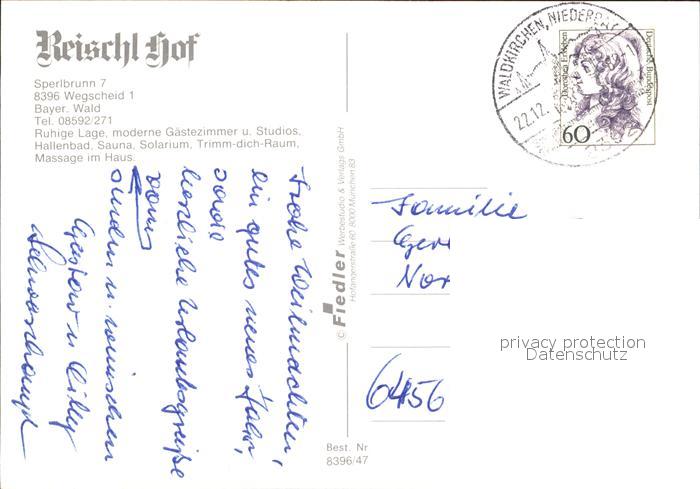 Reischl Hof
Sperlbrunn 7
8396 Wegscheid 1
Bayer. Wald
Tel. 08592/271
Ruhige Lage, moderne Gästezimmer u. Studios,
Hallenbad, Sauna, Solarium, Trimm-dich-Raum,
Massage im Haus.
Frohe Weihnachten,
ein gutes neues Jahr,
sowie
herzliche Urlaubsgrüße
vom
u.
Gustav u. Cilly
© Fiedler Werbestudio & Verlags GmbH
Hofangerstraße 60 8000 München 83
Best. Nr
8396/47
WALDKIRCHEN, NIEDERBAY
22.12.
Deutsche Bundespost
Dorothea Erxleben
60
Familie
Ger
Nor
6456
privacy protection
Datenschutz